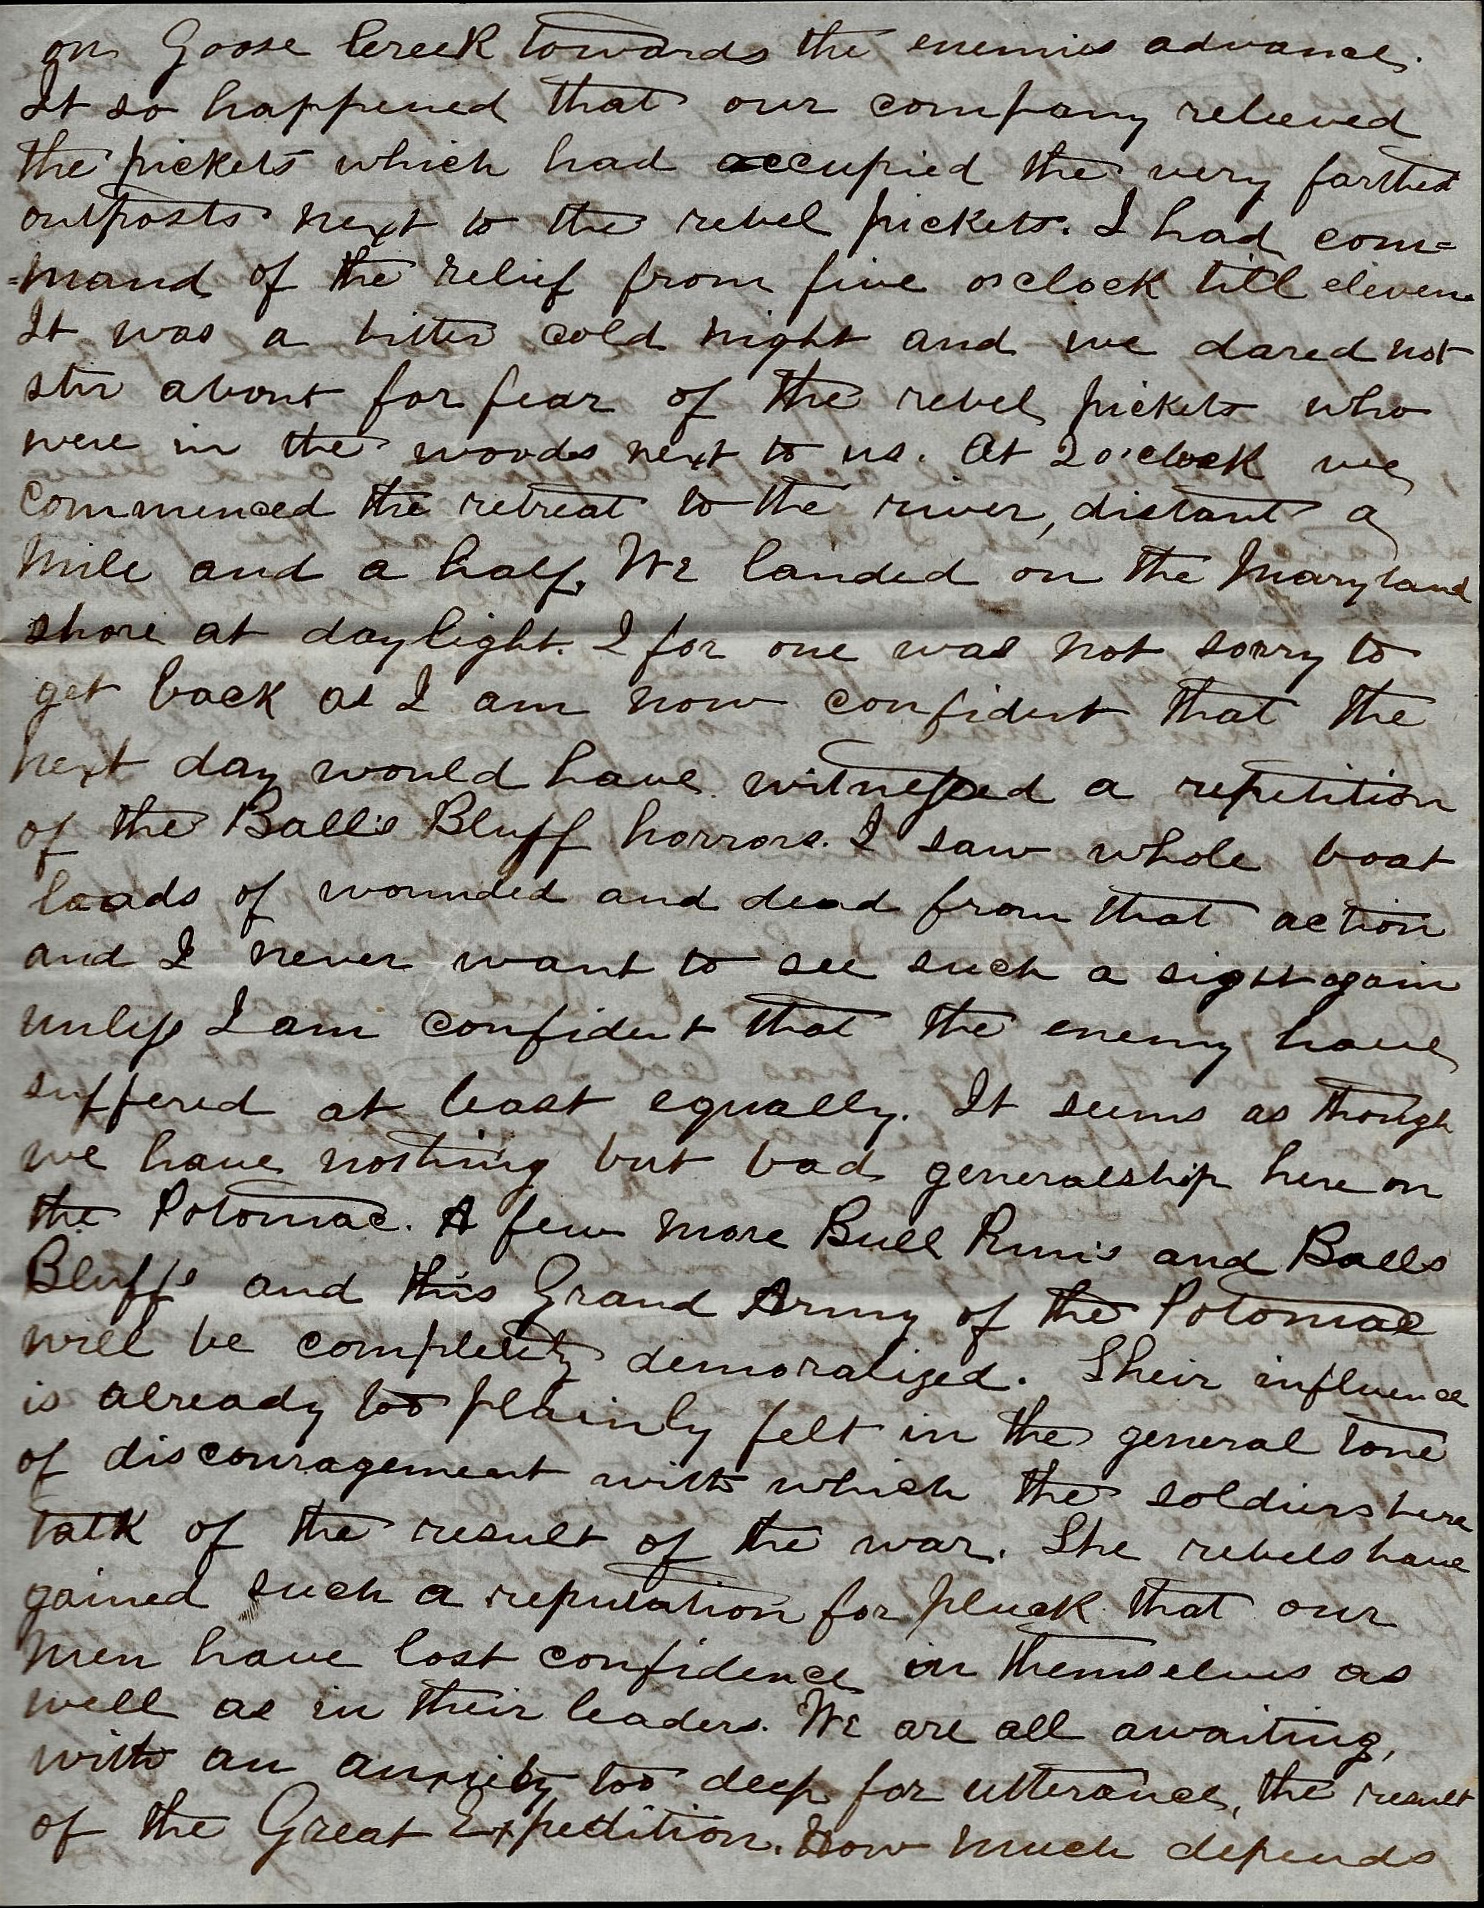 on Goose Creek towards the enemies advance.
It so happened that our company releeved
the pickets which had occupied the very farthest
outposts next to the rebel pickets. I had com=
=mand of the relief from five o'clock till eleven.
It was a bitter cold night and we dared not
stir about for fear of the rebel pickets who
were in the woods next to us. At 2 o'clock we
commenced the retreat to the river, distant a
mile and a half. We landed on the Maryland
shore at daylight. I for one was not sorry to
get back as I am now confident that the
next day would have witnessed a repetition
of the Ball's Bluff horrors. I saw whole boat
loads of wounded and dead from that action
and I never want to see such a sight again
unless I am confident that the enemy have
suffered at least equally. It seems as though
we have nothing but bad generalship here on
the Potomac. A few more Bull Run's and Balls
Bluff's and this Grand Army of the Potomac
will be completely demoralized. Their influence
is already too plainly felt in the general tone
of discouragement with which the soldiers here
talk of the result of the war. The rebels have
gained such a reputation for pluck that our
men have lost confidence in themselves as
well as in their leaders. We are all awaiting,
with an anxiety too deep for utterance, the result
of the Great Expedition. How much depends